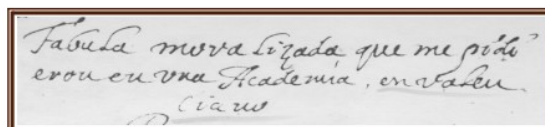 Fabula moralizada que me pidi
eron en vna Academia, en valen
ciano